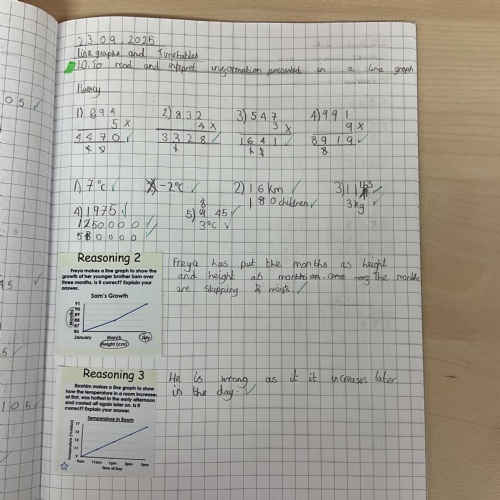 23.09.2025
Line graphs and Timetables
LO: To read and intepret information presented in a line graph
Fluency
1) 894 2) 832 3) 547 4) 991
5 x 4 x 3 x 9 x
4470 ✓ 3328 ✓ 1641 ✓ 8919 ✓
1) 7°C ✓ -2°C ✓ 2) 16 km ✓ 3) 11
180 children ✓ 3kg
4) 1975 ✓ 5) 45 ✓
3°C ✓
0000
Reasoning 2
Freya makes a line graph to show the
growth of her younger brother Sam over
three months. Is it correct? Explain your
answer.
Sam's Growth
91
90
89
88
87
86
Months
January March July
Height (cm)
Freya has put the months as height
and height as months. the months
are skipping months.
Reasoning 3
Ibtstam makes a line graph to show
how the temperature in a room increased
at first, was hottest in the early afternoon
and cooled off again later on. Is it
correct? Explain your answer.
Temperature in Room
17
15
13
11
9
Temperature (°Celsius)
9am 11am 1pm 3pm 5pm
Time of Day
He is wrong as it it increases later
in the day. ✓
05 ✓
45 ✓
5 ✓
105 ✓